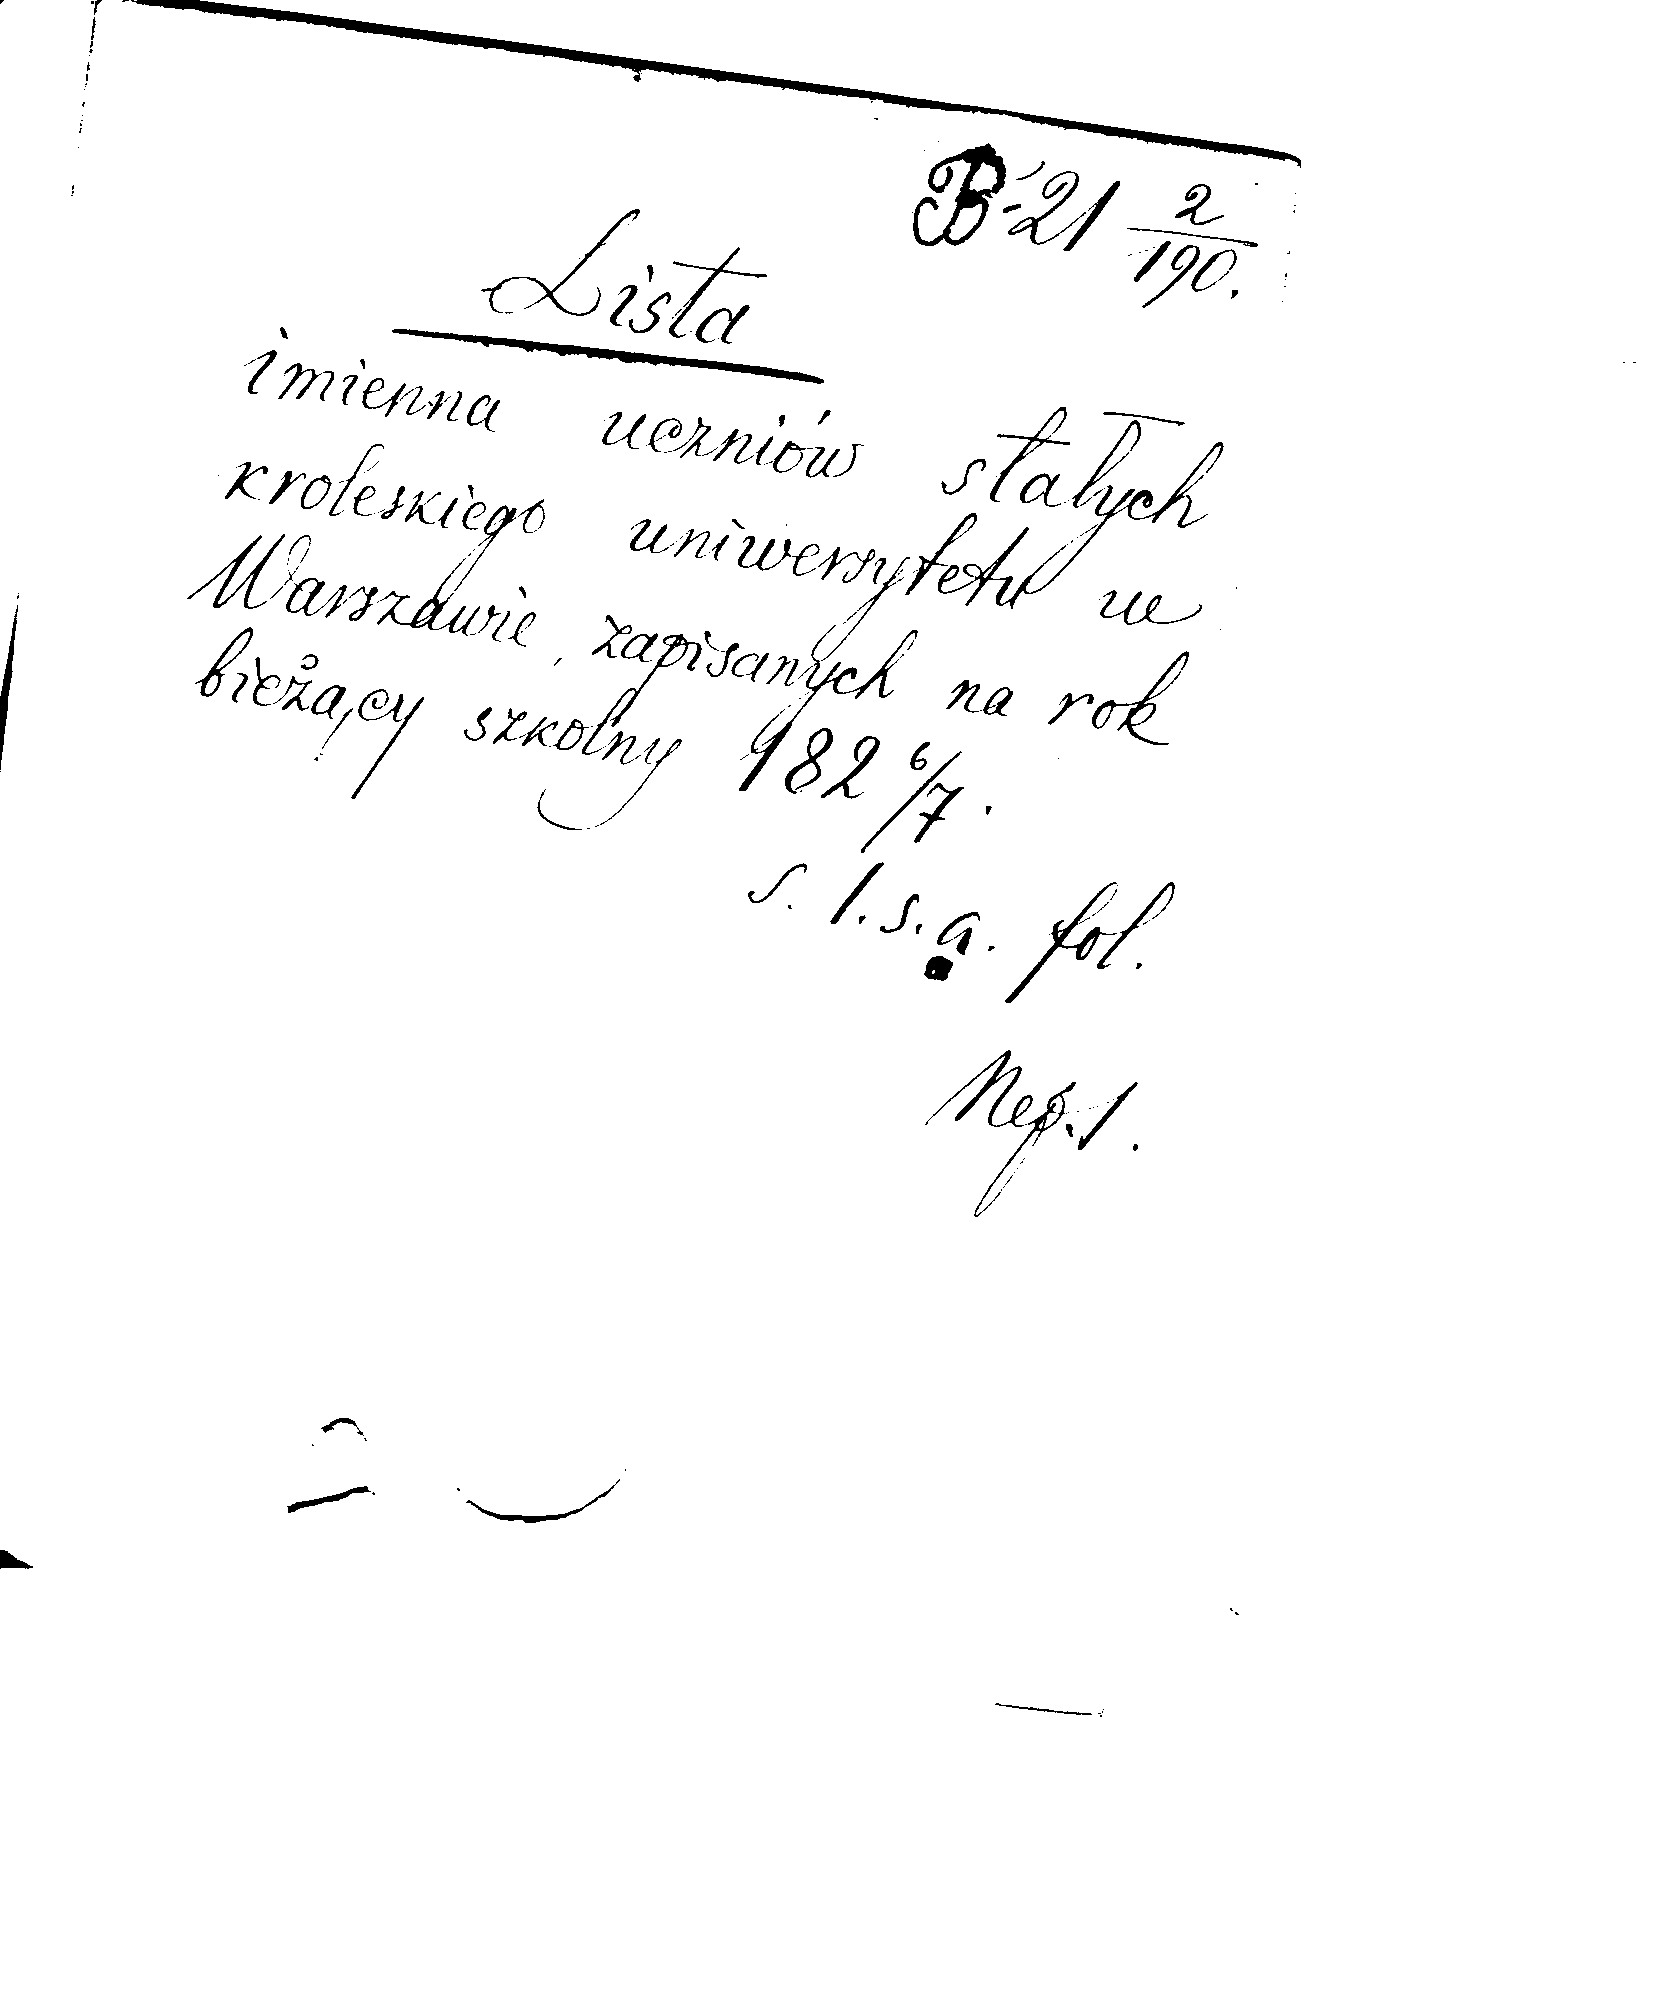 B-21 2/190.
Lista
imienna uczniów stałych
kroleskiego uniwersytetu w
Warszawie, zapisanych na rok
bieżący szkolny 182 6/7.
s. l. s. a. fol.